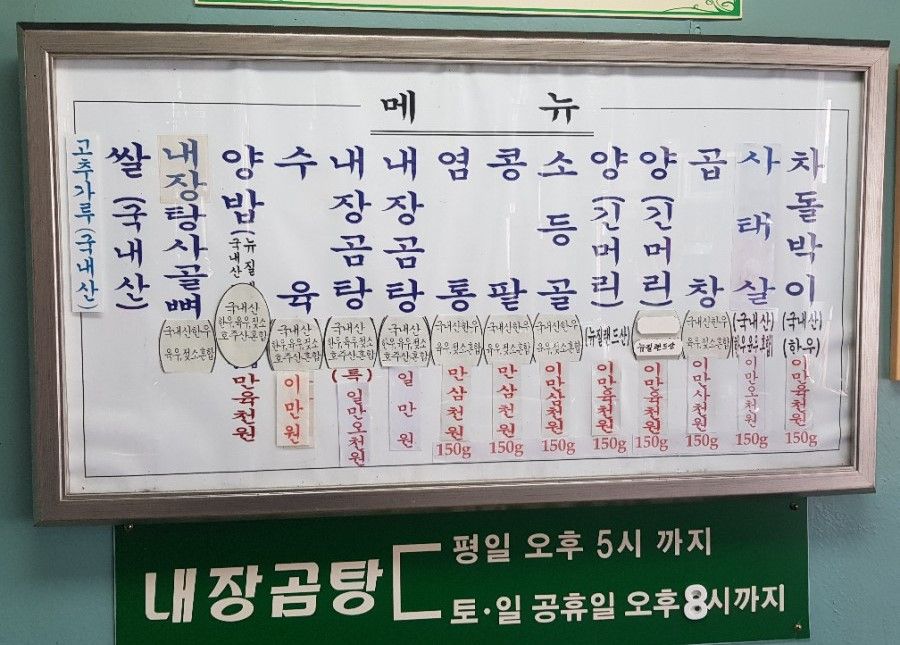 메뉴
차돌박이
(국내산)
(한우)
이만육천원
150g
사태살
(국내산)
이만오천원
150g
곱창
국내산한우
육우젖소혼합
이만사천원
150g
양(긴머리)
뉴질랜드산
이만육천원
150g
양(긴머리)
(뉴질랜드산)
이만육천원
150g
소등골
국내산한우
육우젖소혼합
이만삼천원
150g
콩팥
국내산한우
육우젖소혼합
만삼천원
150g
염통
국내산한우
육우젖소혼합
만삼천원
150g
내장곰탕
국내산
한우,육우,젖소
호주산혼합
일만원
내장곰탕
국내산
한우,육우,젖소
호주산혼합
(특)
일만오천원
수육
국내산
한우,육우,젖소
호주산혼합
이만원
양밥(
뉴질
국내산
국내산
한우,육우,젖소
호주산혼합
만육천원
내장탕사골뼈
국내산한우
육우젖소혼합
쌀(국내산)
고추가루(국내산)
내장곰탕
평일 오후 5시 까지
토·일 공휴일 오후8시까지